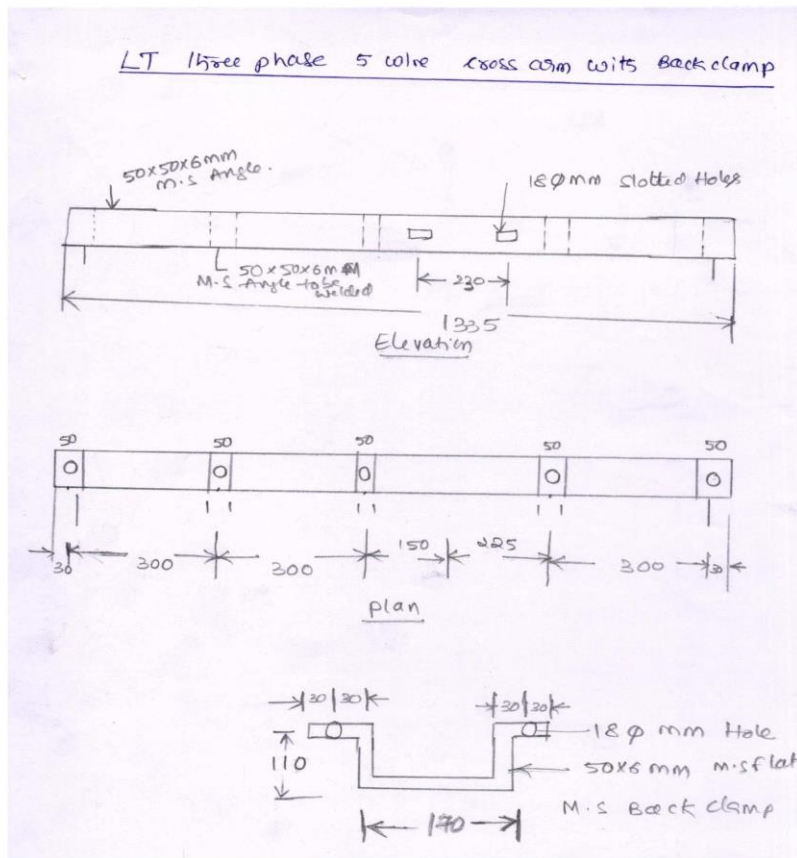 LT three phase 5 wire cross arm with Back clamp
50x50x6mm
M.S Angle.
18φmm slotted Holes
50x50x6mm
M.S Angle to be
welded
230
1335
Elevation
50 50 50 50 50
30 300 300 150 225 300 30
plan
30 30 30 30
18φ mm Hole
110
50x6 mm m.s flat
M.S Back clamp
170